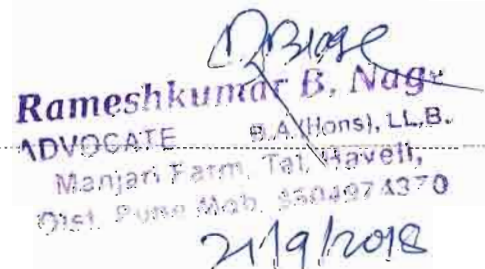 Rameshkumar B. Nage
ADVOCATE B.A.(Hons), LL.B.
Manjari Farm, Tal. Haveli,
Dist. Pune Mob.
21/9/2018